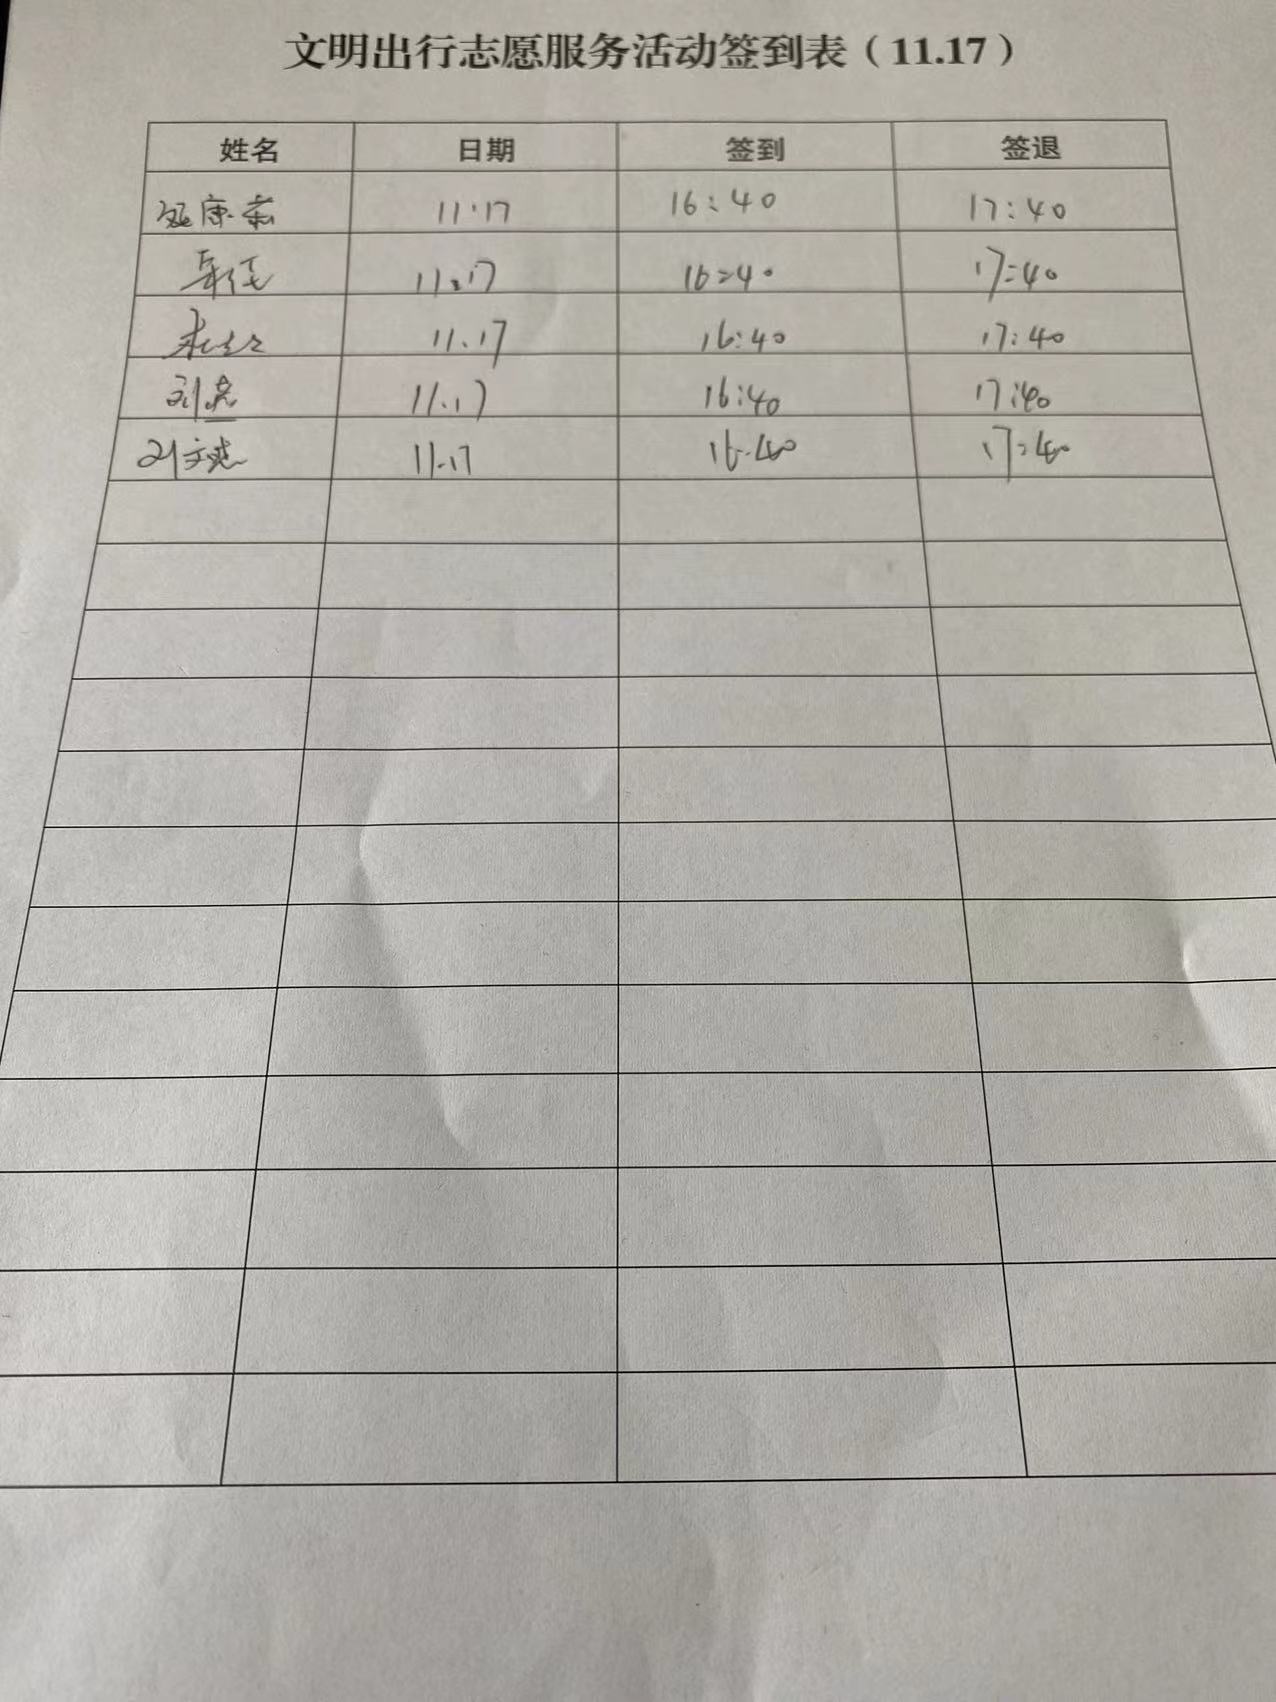 文明出行志愿服务活动签到表（11.17）
姓名 日期 签到 签退
康 11.17 16:40 17:40
11.17 16:40 17:40
11.17 16:40 17:40
刘 11.17 16:40 17:40
刘文 11.17 16:40 17:40